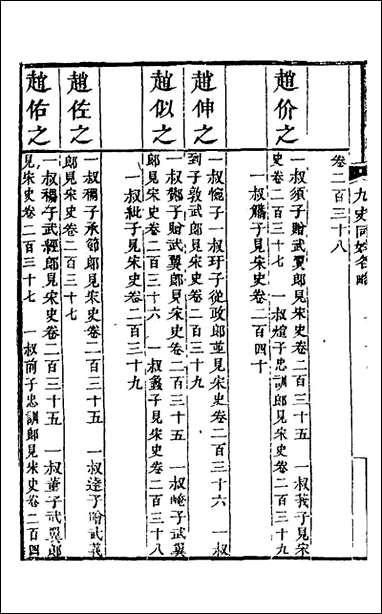 九史同姓名略
卷二百三十八
趙价之
一叔須子贈武翼郎見宋史卷二百三十五　一叔莪子見宋
史卷二百三十七　一叔㷡子忠訓郎見宋史卷二百三十九
一叔觿子見宋史卷二百四十
趙伸之
一叔惋子一叔玕子從政郎並見宋史卷二百三十六　一叔
到子敦武郎見宋史卷二百三十九
趙似之
一叔鄭子贈武翼郎見宋史卷二百三十五　一叔崦子武翼
郎見宋史卷二百三十六　一叔蠡子見宋史卷二百三十八
一叔紪子見宋史卷二百三十九
趙佐之
一叔襧子承節郎見宋史卷二百三十五　一叔達子贈武義
郎見宋史卷二百三十七
趙佑之
一叔襧子武經郎見宋史卷二百三十五　一叔董子武翼郎
見宋史卷二百三十七　一叔前子忠訓郎見宋史卷二百四